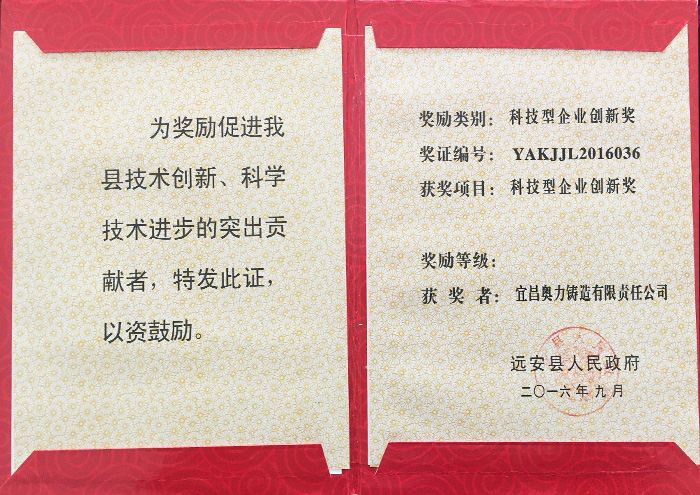 为奖励促进我
县技术创新、科学
技术进步的突出贡
献者，特发此证，
以资鼓励。
奖励类别：科技型企业创新奖
奖证编号：YAKJJL2016036
获奖项目：科技型企业创新奖
奖励等级：
获奖者：宜昌奥力铸造有限责任公司
远安县人民政府
二〇一六年九月